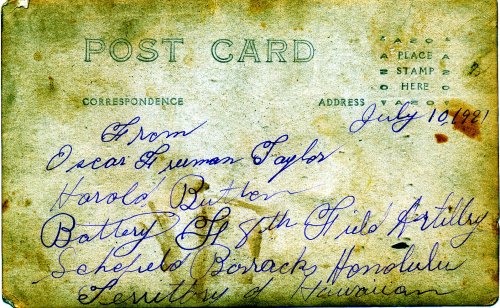 POST CARD
AZO
PLACE
STAMP
HERE
AZO
CORRESPONDENCE
ADDRESS
July 10, 1921
From
Oscar Freeman Taylor
Harold Button
Battery F 8th Field Artillry
Schefield Barracks Honolulu
Territory of Hawaiian